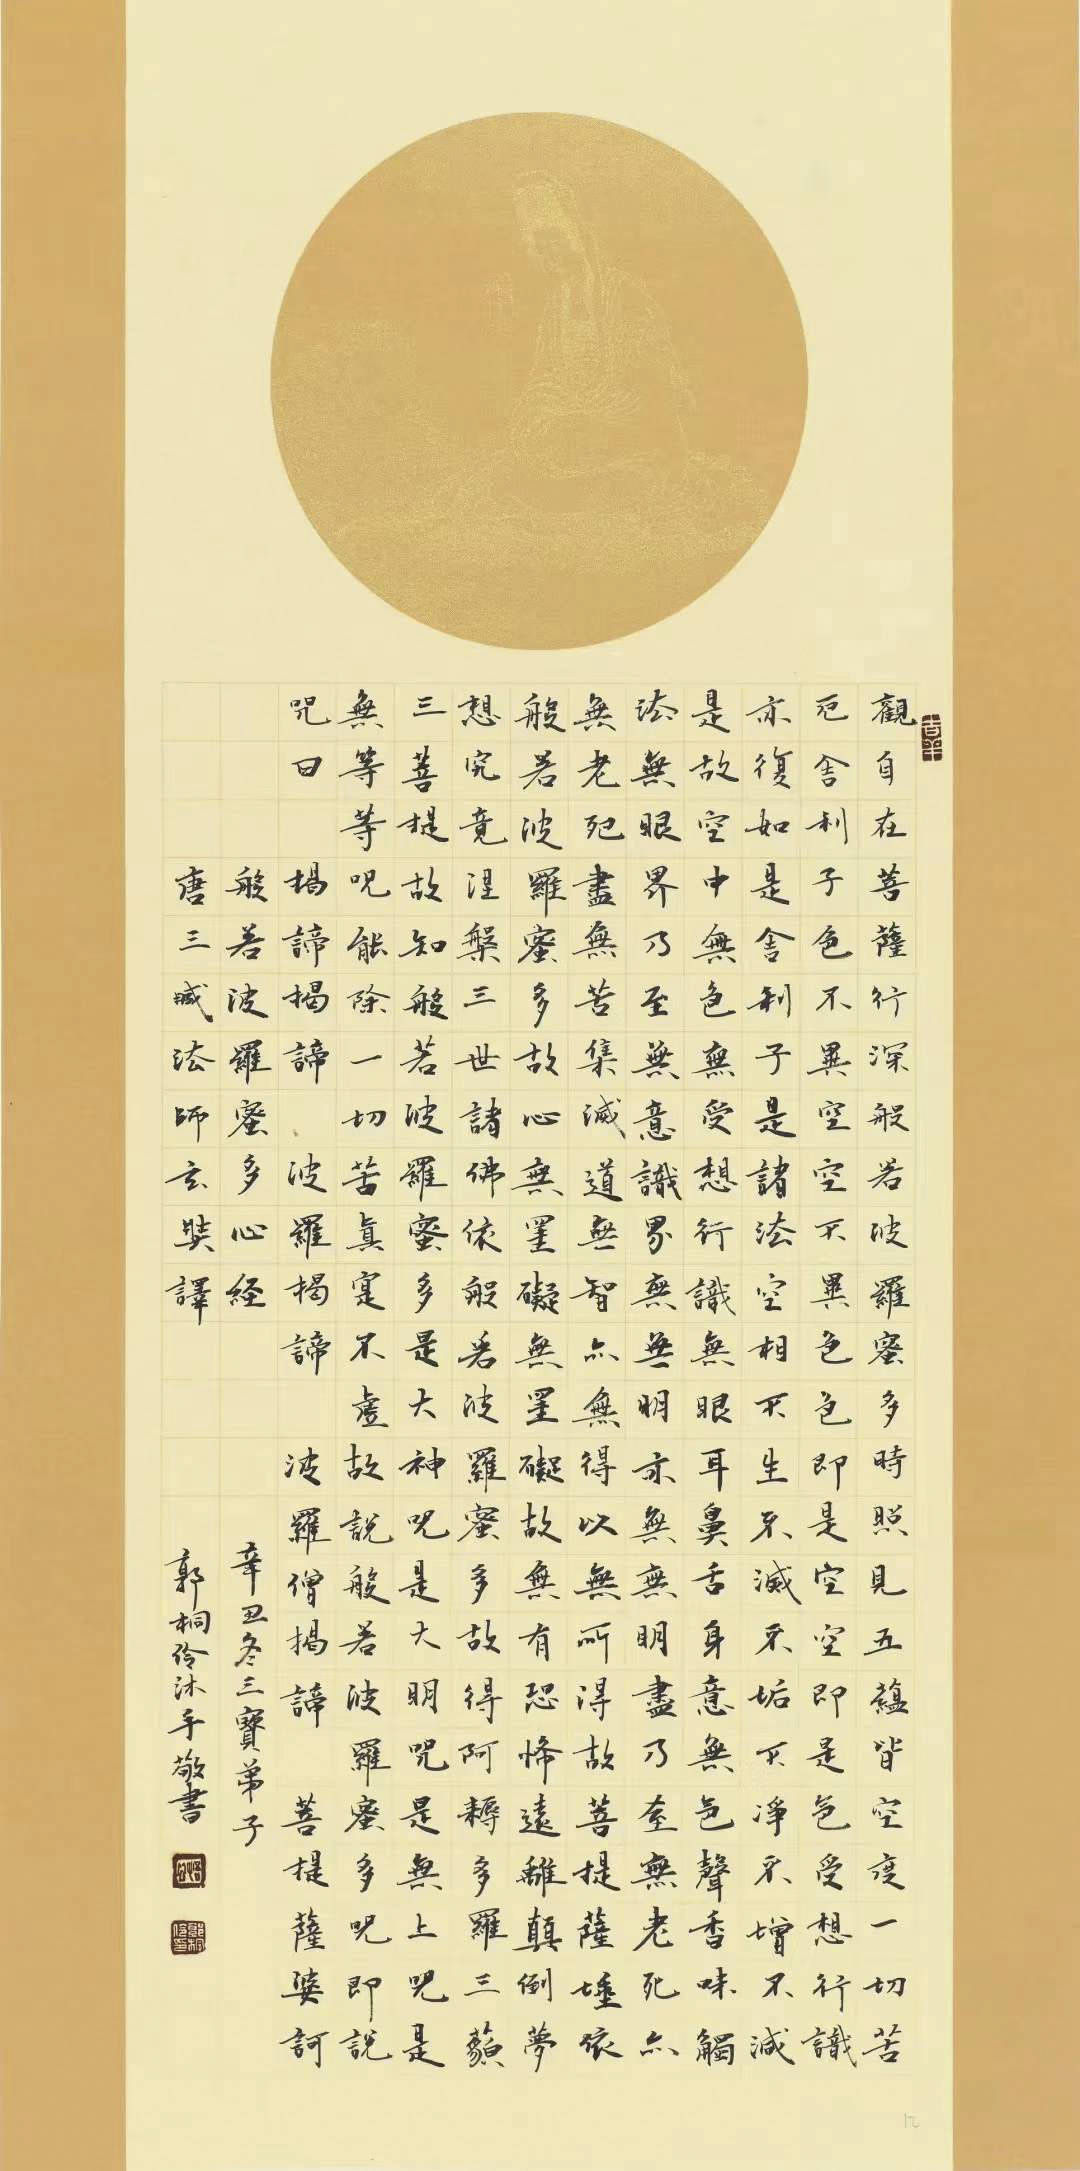 觀自在菩薩行深般若波羅蜜多時照見五蘊皆空度一切苦
厄舍利子色不異空空不異色色即是空空即是色受想行識
亦復如是舍利子是諸法空相不生不滅不垢不淨不增不減
是故空中無色無受想行識無眼耳鼻舌身意無色聲香味觸
法無眼界乃至無意識界無無明亦無無明盡乃至無老死亦
無老死盡無苦集滅道無智亦無得以無所得故菩提薩埵依
般若波羅蜜多故心無罣礙無罣礙故無有恐怖遠離顛倒夢
想究竟涅槃三世諸佛依般若波羅蜜多故得阿耨多羅三藐
三菩提故知般若波羅蜜多是大神咒是大明咒是無上咒是
無等等咒能除一切苦真寔不虛故說般若波羅蜜多咒即說
咒曰 揭諦揭諦 波羅揭諦 波羅僧揭諦 菩提薩婆訶
般若波羅蜜多心経
唐三藏法師玄奘譯
辛丑冬三寶弟子
郭桐伶沐手敬書